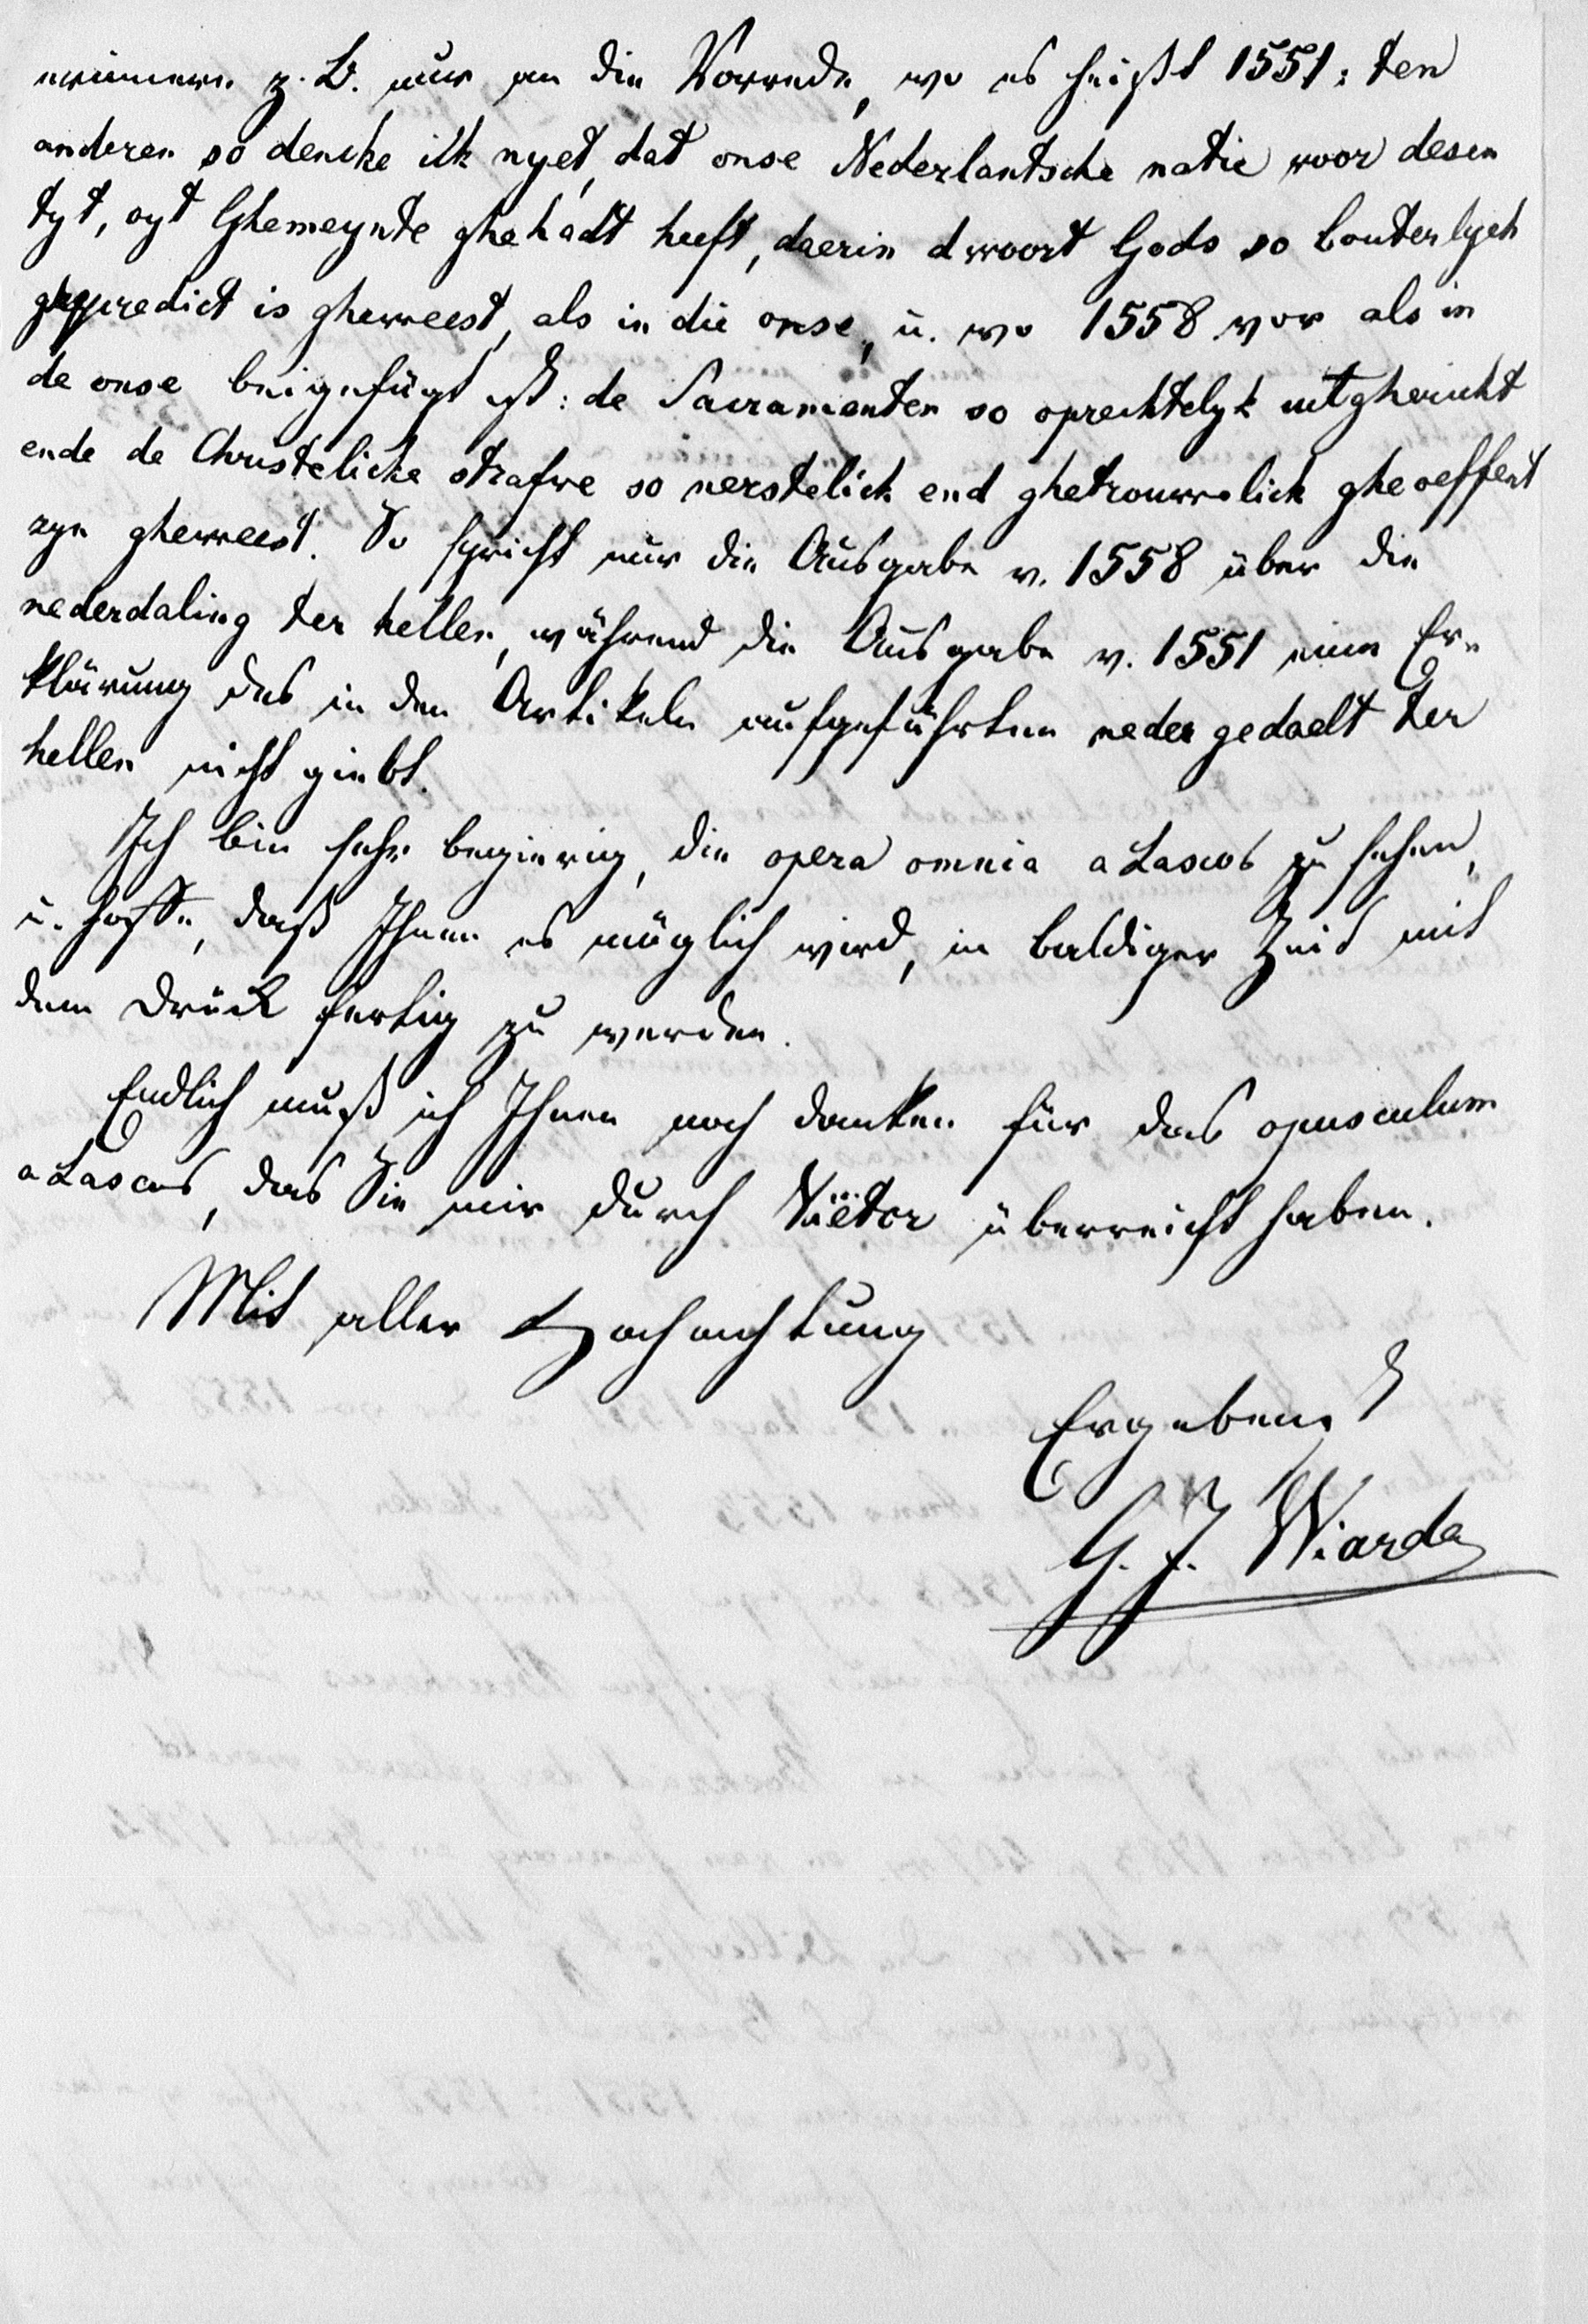 erinnere z. B. nur an die Vorrede, wo es heißt 1551: ten
anderen so dencke ilk nyet, dat onse Nederlantsche natie voor desen
tyt, oyt Ghemeynte ghehadt heeft, daerin dwoort Gods so louterlych
ghepredict is gheweest, als in die onse, u. wo 1558 vor als in
de onse beigefügt ist: de Sacramenten so oprechtelyk uutghericht
ende de Christelicke straffe so nerstelick end ghetrouwelick gheoeffent
zyn gheweest. So spricht nur die Ausgabe v. 1558 über die
nederdaling ter hellen, während die Ausgabe v. 1551 eine Er-
klärung des in den Artikeln aufgeführten nedergedaelt ter
hellen nicht giebt.
Ich bin sehr begierig, die opera omnia a Lascos zu sehen,
u. hoffe, daß Ihnen es möglich wird, in baldiger Zeit mit
dem Druck fertig zu werden.
Endlich muß ich Ihnen noch danken für das opusculum
a Lascos, das Sie mir durch Viëtor überreicht haben.
Mit aller Hochachtung
Ergebenst
G. J. Wiarda